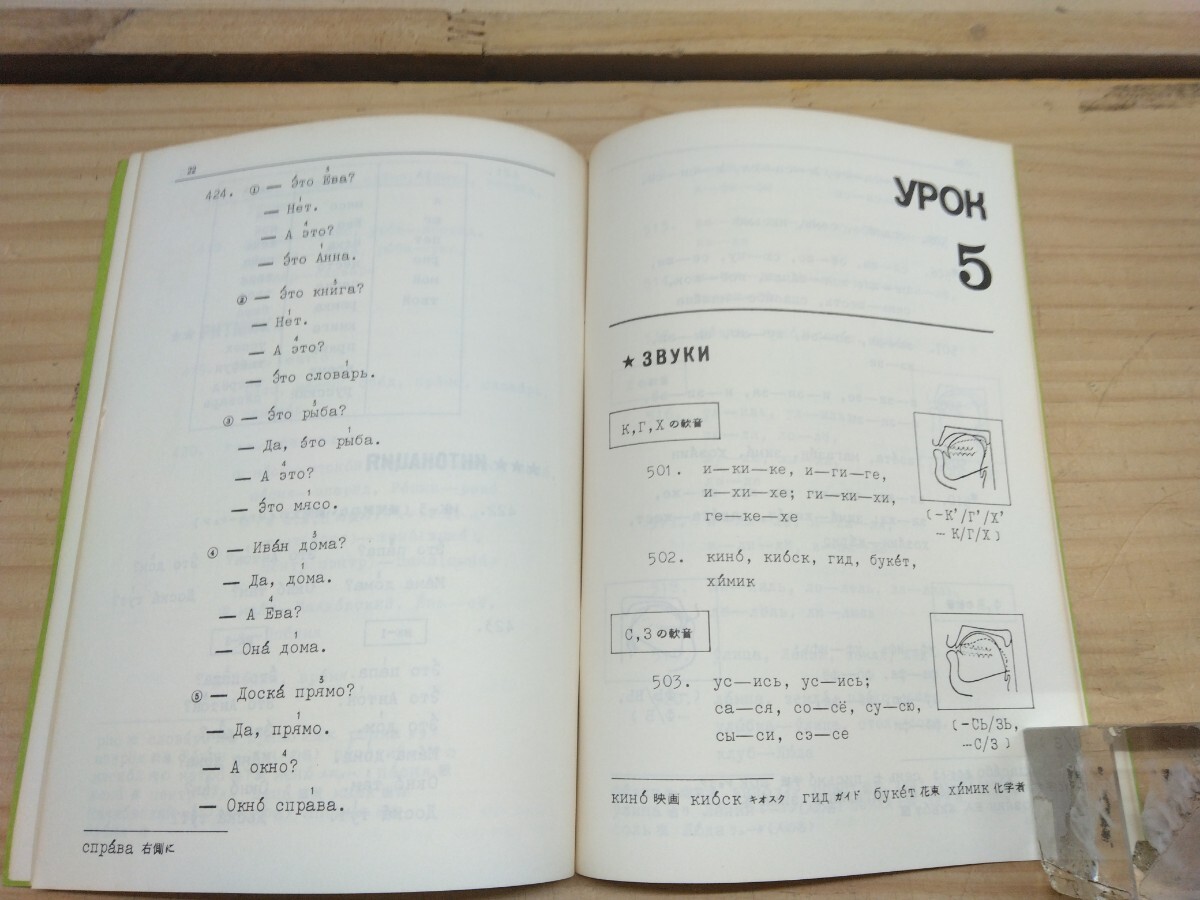 22
424. ① — Э́то Е́ва?
— Нет.
— А э́то?
— Э́то А́нна.
② — Э́то кни́га?
— Нет.
— А э́то?
— Э́то слова́рь.
③ — Э́то ры́ба?
— Да, э́то ры́ба.
— А э́то?
— Э́то мя́со.
④ — Ива́н до́ма?
— Да, до́ма.
— А Е́ва?
— Она́ до́ма.
⑤ — Доска́ пря́мо?
— Да, пря́мо.
— А окно́?
— Окно́ спра́ва.
спра́ва 右側に
УРОК
5
★ ЗВУКИ
К,Г,Хの軟音
501. и—ки—ке, и—ги—ге,
и—хи—хе; ги—ки—хи,
ге—ке—хе
(-К'/Г'/Х'
-К/Г/Х)
502. кино́, кио́ск, гид, буке́т,
хи́мик
С,Зの軟音
503. ус—ись, ус—ись;
са—ся, со—сё, су—сю,
сы—си, сэ—се
(-СЬ/ЗЬ,
-С/З)
кино́ 映画 кио́ск キオスク гид ガイド буке́т 花束 хи́мик 化学者